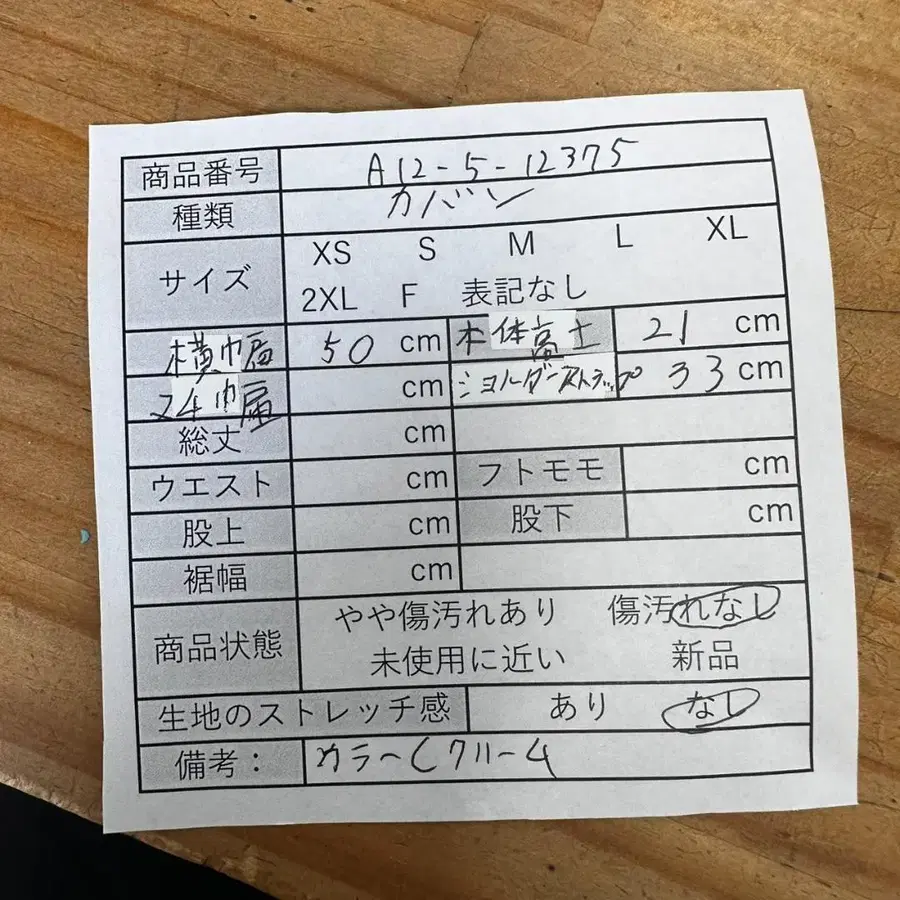 商品番号 A12-5-12375
種類 カバン
サイズ XS S M L XL
2XL F 表記なし
横巾届 50 cm 本体高士 21 cm
マチ巾届 cm ショルダーストラップ 33 cm
総丈 cm
ウエスト cm フトモモ cm
股上 cm 股下 cm
裾幅 cm
商品状態 やや傷汚れあり 傷汚れなし
未使用に近い 新品
生地のストレッチ感 あり なし
備考: カラー クリーム